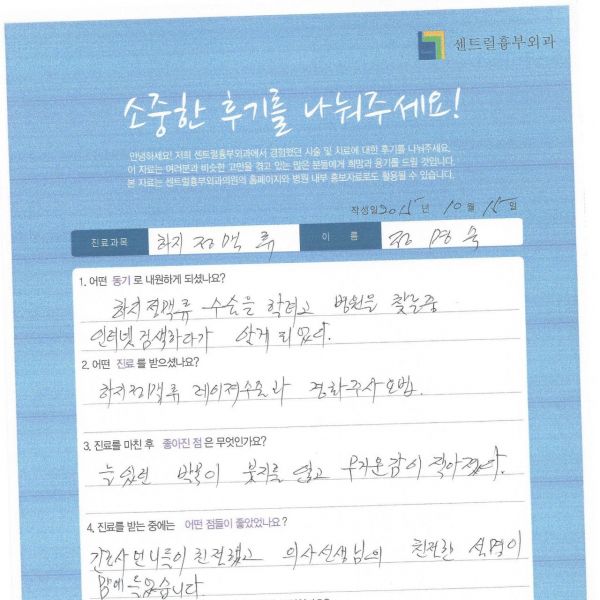 센트럴흉부외과
소중한 후기를 나눠주세요!
안녕하세요! 저희 센트럴흉부외과에서 경험했던 시술 및 치료에 대한 후기를 나눠주세요.
이 자료는 여러분과 비슷한 고민을 겪고 있는 많은 분들에게 희망과 용기를 드릴 것입니다.
본 자료는 센트럴흉부외과의원의 홈페이지와 병원 내부 홍보자료로도 활용될 수 있습니다.
작성일 2015년 10월 15일
진료과목 하지정맥류 이름 정영숙
1. 어떤 동기로 내원하게 되셨나요?
하지정맥류 수술을 할려고 병원을 찾는중
인터넷검색하다가 알게 되었다.
2. 어떤 진료를 받으셨나요?
하지정맥류 레이저수술과 경화주사요법.
3. 진료를 마친 후 좋아진 점은 무엇인가요?
늘 있던 발목이 붓지를 않고 무거운감이 적아졌다.
4. 진료를 받는 중에는 어떤 점들이 좋았었나요?
간호사 언니들이 친절했고 의사선생님의 친절한 설명이
맘에 들었습니다.